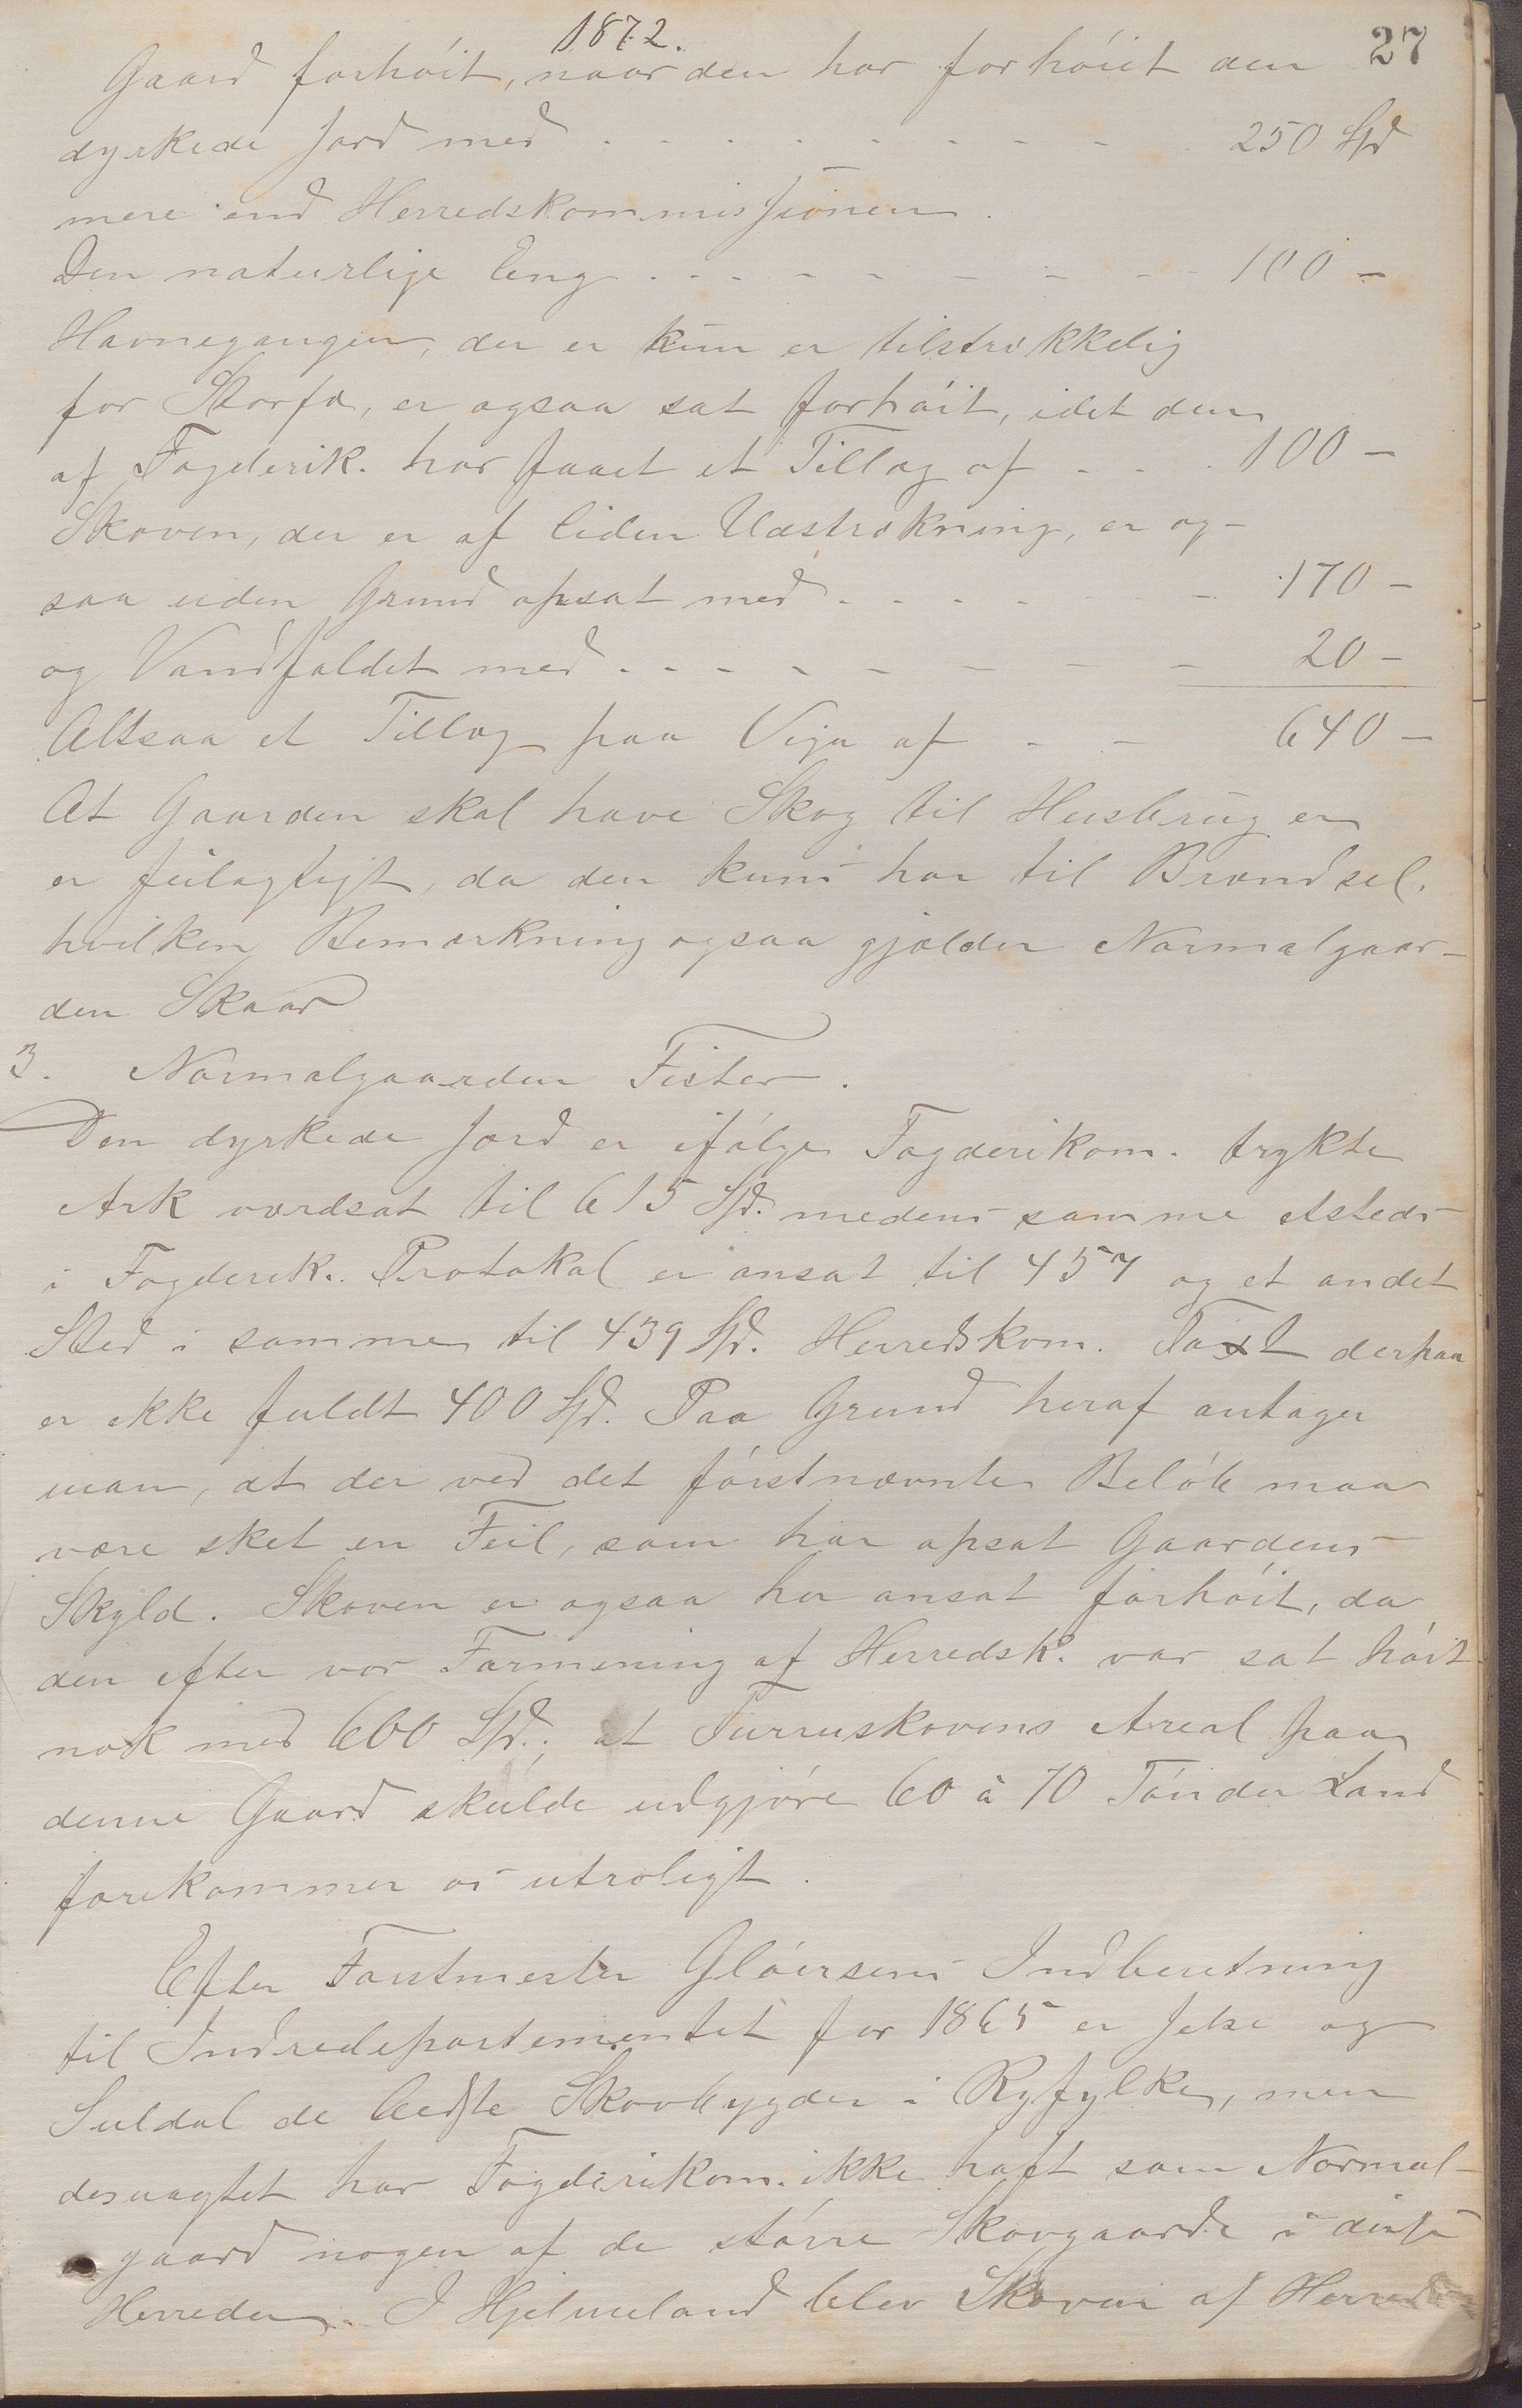 1872.
27
Gaard forhøit, naar den har forhøiet den
dyrkede Jord med . . . . . . . . 250 Spd
mere end Herredskommissionen.
Den naturlige Eng . . . - - - - - - 100 -
Havnegangen, der er kun er tilstrækkelig
for Storfæ, er ogsaa sat forhøit, idet den
af Fogderik. har faaet et Tillæg af - - . 100 -
Skoven, der er af liden Udstrækning, er og-
saa uden Grund opsat med . - - - - - - 170 -
og Vandfaldet med . - - - - - - - 20 -
Altsaa et Tillæg paa Viga af - - 640 -
At Gaarden skal have Skog til Husbrug er
er feilagtigt, da den kun har til Brændsel.
hvilken Bemærkning ogsaa gjælder Normalgaar-
den Skaar
3. Normalgaarden Fister.
Den dyrkede Jord er ifølge Fogderikom. trykte
Ark værdsat til 615 Spd. medens samme etsteds
i Fogderik. Protokol er ansat til 457 og et andet
Sted i samme til 439 Spd. Herredskom. Taxt derpaa
er ikke fuldt 400 Spd. Paa Grund heraf antager
man, at der ved det førstnævnte Beløb maa
være sket en Feil, som har opsat Gaardens
Skyld. Skoven er ogsaa her ansat forhøit, da
den efter vor Formening af Herredsk. var sat høit
nok med 600 Spd.; at Furruskovens Areal paa
denne Gaard skulde udgjøre 60 à 70 Tønder Land
forekommer os utroligt.
Efter Forstmester Gløersens Indberetning
til Indredepartementet for 1865 er Jelse og
Suldal de bedste Skovbygder i Ryfylke, men
desuagtet har Fogderikom. ikke havt som Normal-
gaard nogen af de større Skovgaarde i disse
Herreder. I Hjelmeland blev Skoven af Herreds